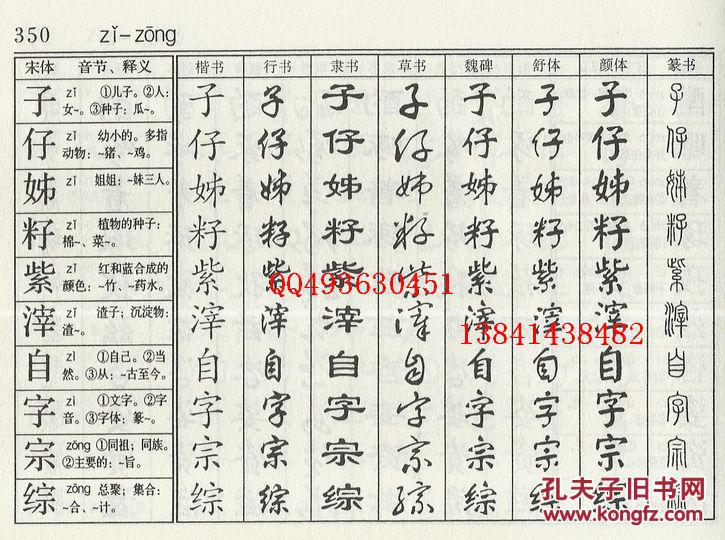 350 zǐ–zōng
宋体 音节、释义 楷书 行书 隶书 草书 魏碑 舒体 颜体 篆书
子 zǐ ①儿子。②人: 子 子 子 子 子 子 子 子
女~。③种子: 瓜~。
仔 zǐ 幼小的。多指 仔 仔 仔 仔 仔 仔 仔 仔
动物: ~猪、~鸡。
姊 zǐ 姐姐: ~妹三人。 姊 姊 姊 姊 姊 姊 姊 姊
籽 zǐ 植物的种子: 籽 籽 籽 籽 籽 籽 籽 籽
棉~、菜~。
紫 zǐ 红和蓝合成的 紫 紫 紫 紫 紫 紫 紫 紫
颜色: ~竹、~药水。
QQ493630451
滓 zǐ 渣子; 沉淀物: 滓 滓 滓 滓 滓 滓 滓 滓
渣~。
13841438482
自 zì ①自己。②当 自 自 自 自 自 自 自 自
然。③从: ~古至今。
字 zì ①文字。②字 字 字 字 字 字 字 字 字
音。③字体: 篆~。
宗 zōng ①同祖; 同族。 宗 宗 宗 宗 宗 宗 宗 宗
②主要的: ~旨。
综 zōng 总聚; 集合: 综 综 综 综 综 综 综
~合、~计。
孔夫子旧书网
www.kongfz.com